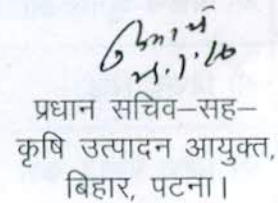 प्रधान सचिव–सह–
कृषि उत्पादन आयुक्त,
बिहार, पटना।